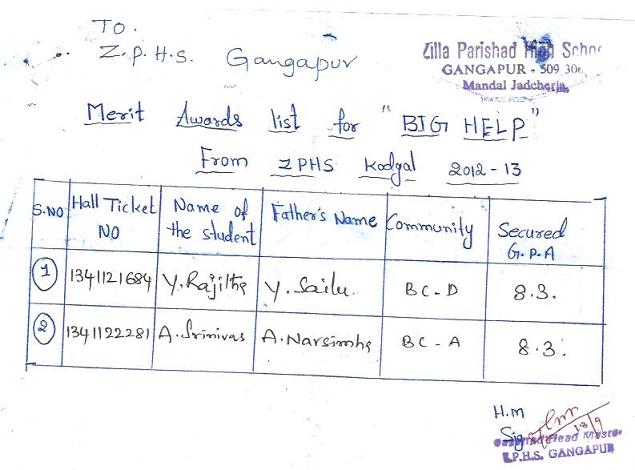 To.
Z.P.H.S. Gangapur
Zilla Parishad High Schoo
GANGAPUR - 509 30
Mandal Jadcherla
Merit Awards list for "BIG HELP"
From ZPHS Kodgal 2012-13
S.NO Hall Ticket NO Name of the student Father's Name Community Secured G.P.A
1 1341121684 Y.Rajitha Y.Sailu BC-D 8.3.
2 1341122281 A.Srinivas A.Narsimha BC-A 8.3.
H.M
Sig
18/9
Head Master
Z.P.H.S. GANGAPUR